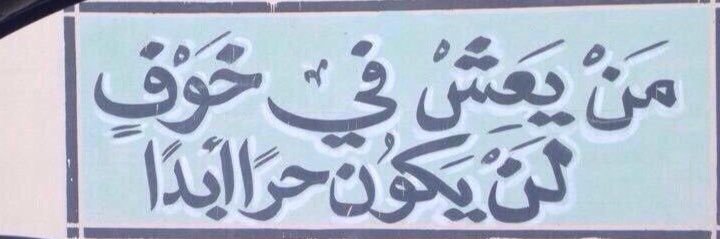 مَنْ يَعَشْ فِي خَوْفٍ
لَنْ يَكوُنَ حرًا أبدًا